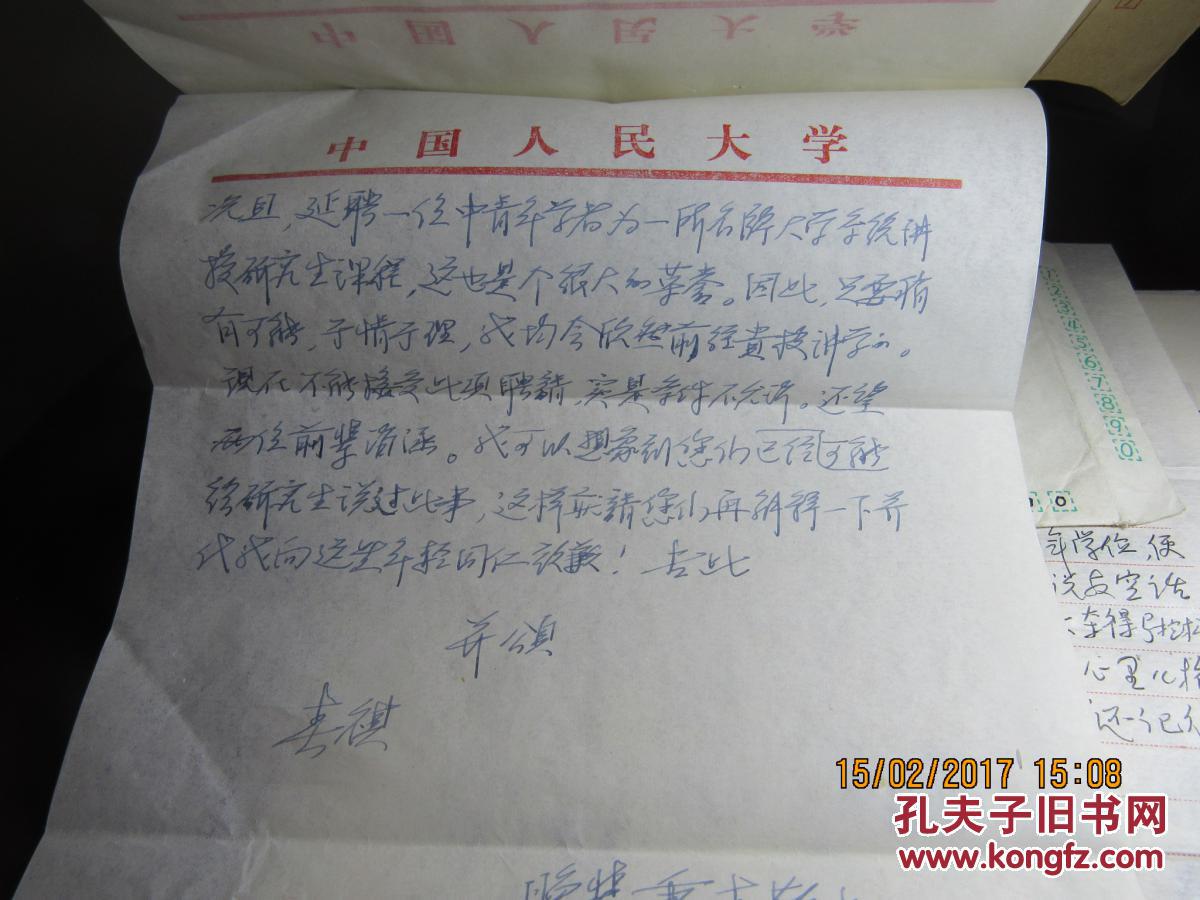 中国人民大学
中国人民大学
况且，延聘一位中青年学者为一所名牌大学系统讲
授研究生课程，这也是个很大的荣誉。因此，只要稍
有可能，于情于理，我均会欣然前往贵校讲学的。
现在不能接受此项聘請，实是条件不允许。还望
两位前辈海涵。我可以想象到您们已经可能
给研究生说过此事，这样敬請您们再解释一下并
代我向这些年轻同仁致歉！专此
并頌
春祺
年学位，便
心里
还记
15/02/2017 15:08
孔夫子旧书网
www.kongfz.com